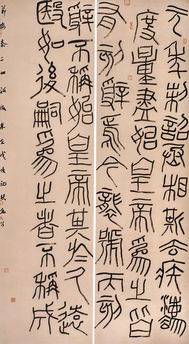 元年制詔丞相斯去疾灋
度量盡始皇帝爲之皆
有刻辭焉今襲號而刻
辭不稱始皇帝其於久遠
殹如後嗣爲之者不稱成
節臨秦二世詔版